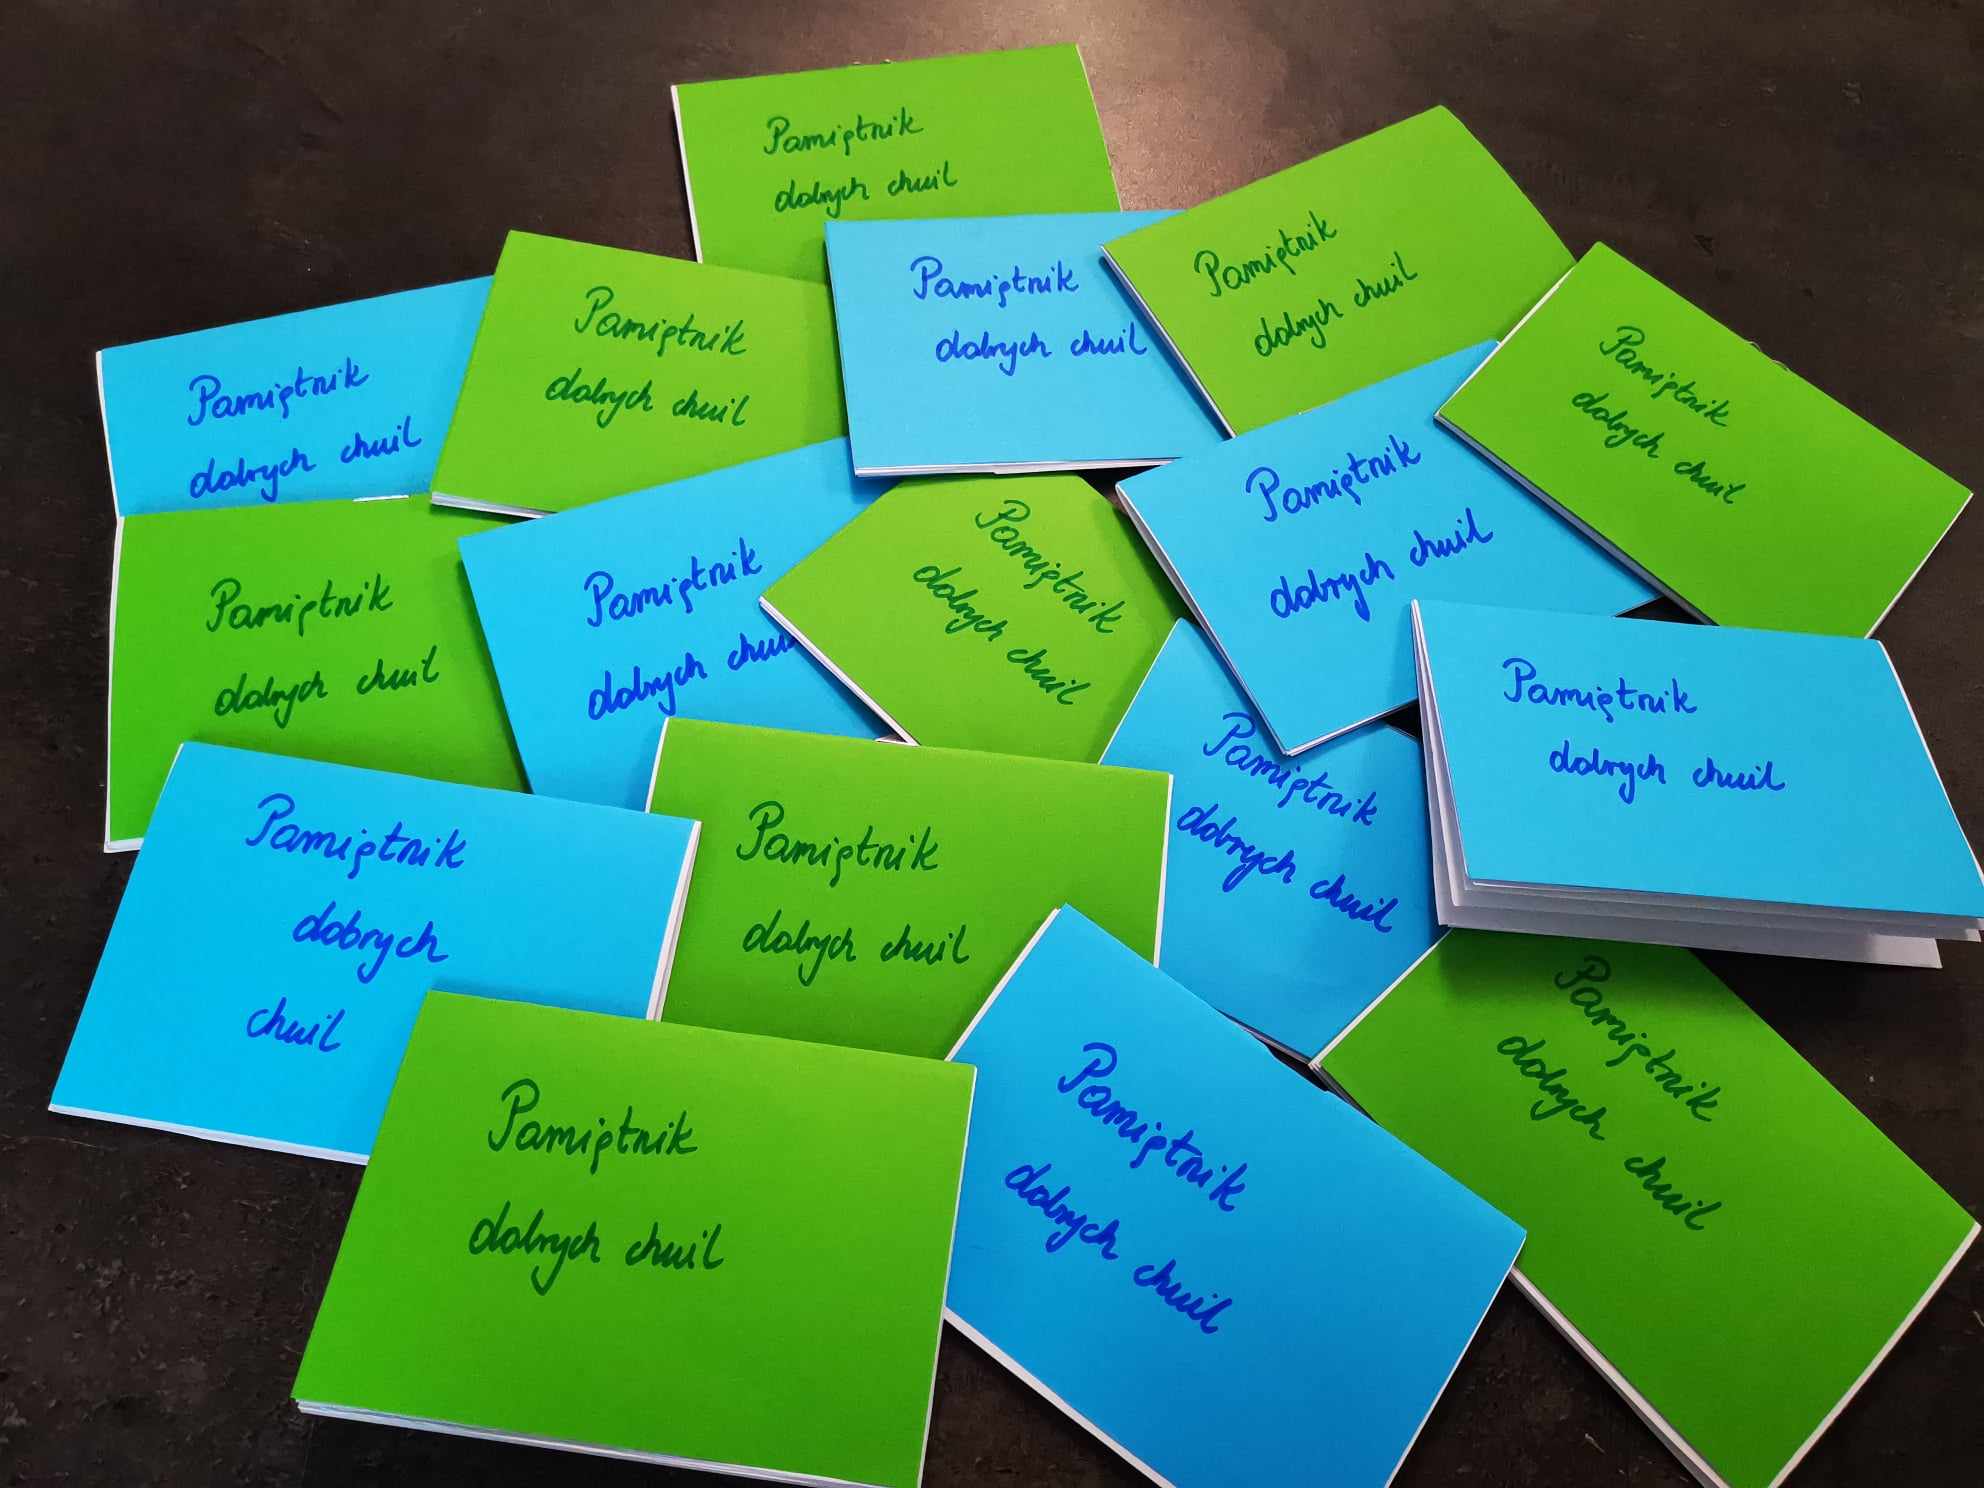 Pamiętnik
dobrych chwil
Pamiętnik
dobrych chwil
Pamiętnik
dobrych chwil
Pamiętnik
dobrych chwil
Pamiętnik
dobrych chwil
Pamiętnik
dobrych chwil
Pamiętnik
dobrych chwil
Pamiętnik
dobrych chwil
Pamiętnik
dobrych chwil
Pamiętnik
dobrych chwil
Pamiętnik
dobrych chwil
Pamiętnik
dobrych chwil
Pamiętnik
dobrych
chwil
Pamiętnik
dobrych chwil
Pamiętnik
dobrych chwil
Pamiętnik
dobrych chwil
Pamiętnik
dobrych chwil